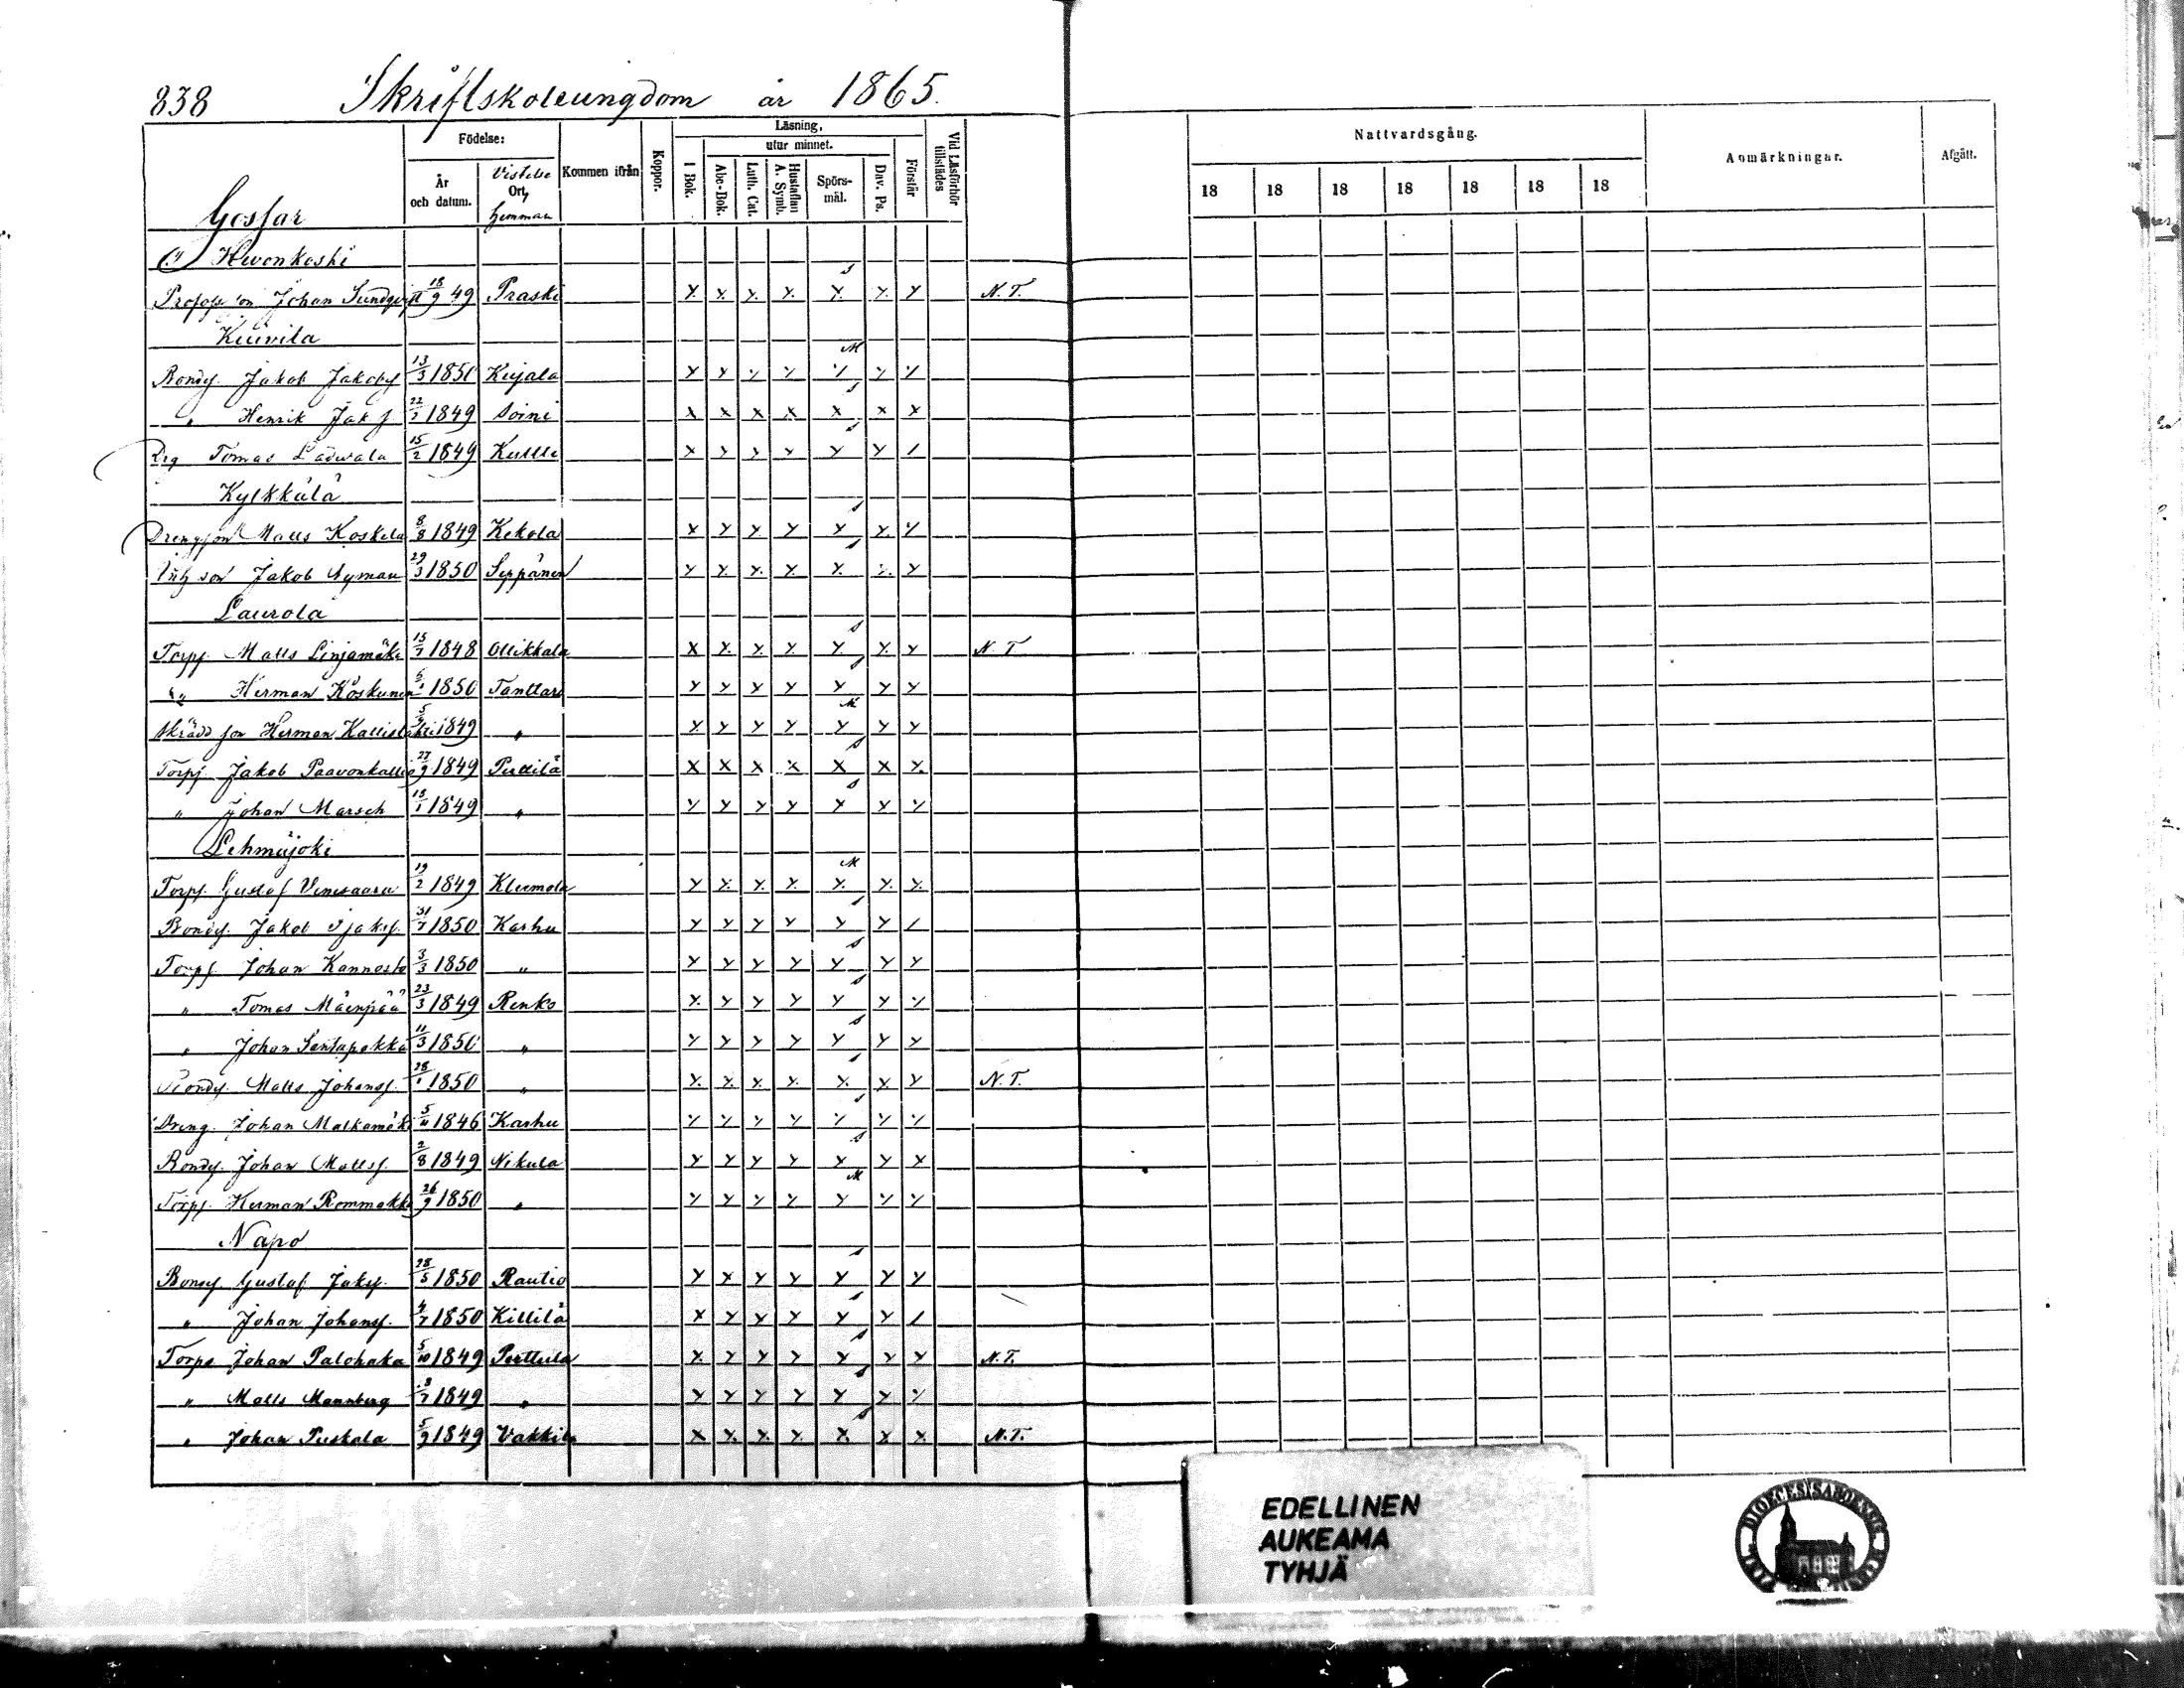 838 Skriftskoleungdom år 1865.
Födelse: Kommen ifrån Koppor. Läsning, Vid Läsförhör tillstädes Nattvardsgång. Anmärkningar. Afgått.
utur minnet.
Gossar År och datum. Vistelse Ort, hemman I Bok. Abc-Bok. Luth. Cat. Hustaflan A. Symb. Spörsmål. Dav. Ps. Förstår 18 18 18 18 18 18 18
Hevonkoski
Johan Sundqvist 18/9 49 Praski y y y y y s y y N. T.
Kuivila
Bondes. Jakob Jakobs 13/3 1850 Kujala y y y y y M y y
" Henrik Jak s 1849 Soini x x x x x s x x
Drg Tomas Ladwala 15/2 1849 Kullti x y y y y s y /
Kylkkälä
Drengson Matts Koskela 8/8 1849 Kekola x y y y y s y y
Jakob Nyman 29/3 1850 Seppänen y y y y y s y y
Laurola
Torps. Matts Linjamäki 15/7 1848 Ollikkala x y y y y s y y N. T
" Herman Koskunen 6/1 1850 Tanttari y y y y y s y y
Skrädd son Herman Kallislahti 1849 " y y y y y M y y
Torps. Jakob Paavonkallio 27/9 1849 Perttilä x x x x x s x x
" Johan Marsch 18/1 1849 " y y y y y s y y
Lehmäjoki
Torps. Gustaf Venesaara 19/2 1849 Kleemola y y y y y M y y
Bondes. Jakob Isaks. 31/7 1850 Karhu y y y y y s y /
Torps. Johan Kannosto 3/3 1850 " y y y y y s y y
" Tomas Mäenpää 23/3 1849 Renko y y y y y s y y
" Johan Santapakka 11/3 1850 " y y y y y s y y
Bondes. Matts Johanss. 28/1 1850 " y y y y y s y y N. T.
Dreng. Johan Matkamäki 5/11 1846 Karhu y y y y y s y y
Bondes. Johan Mattss. 2/8 1849 Nikula y y y y y s y x
Torps. Herman Rommakka 26/9 1850 " y y y y y M y y
Napo
Bondes. Gustaf Jaks. 28/5 1850 Rautio y x y y y s y y
" Johan Johanss. 4/7 1850 Killilä x y y y y s y /
Torps Johan Palohaka 5/10 1849 Perttula y y y y y s y y N. T.
" Matts Mannberg 8/7 1849 " y y y y y s y y
" Johan Puskala 5/9 1849 Vakkila x y y y x s x x N. T.
EDELLINEN
AUKEAMA
TYHJÄ